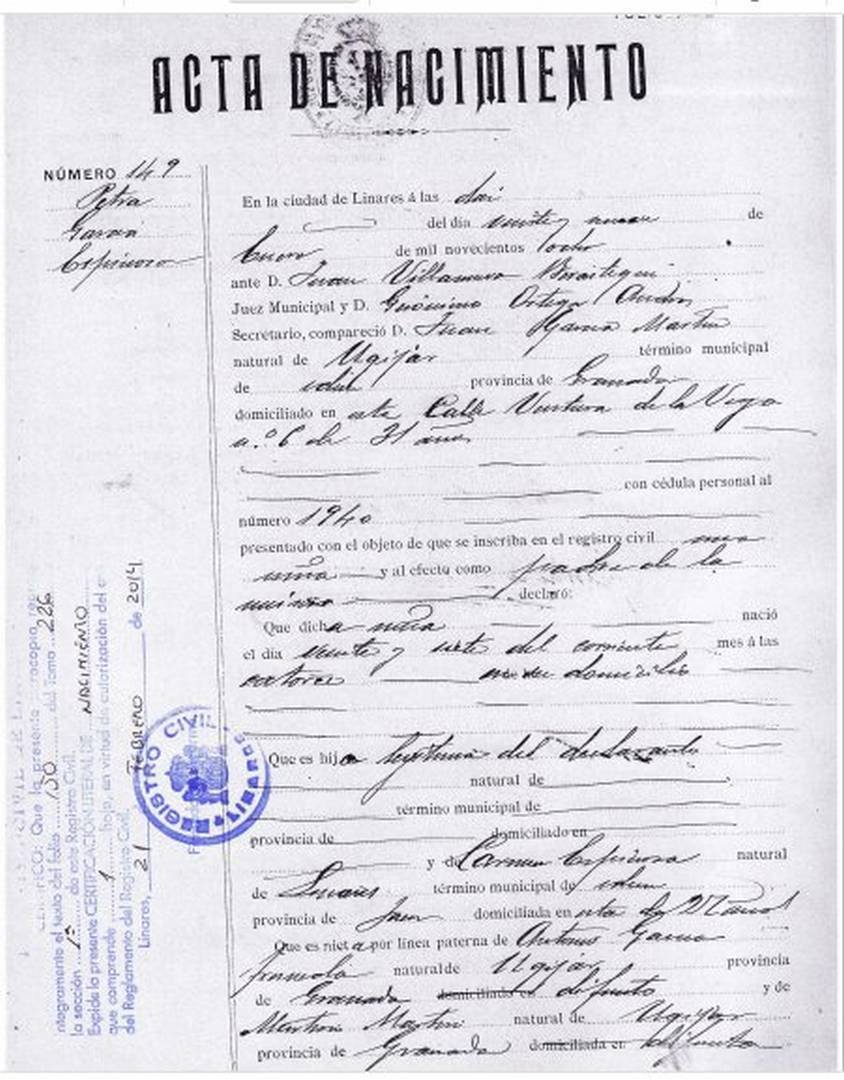 ACTA DE NACIMIENTO
NÚMERO 149
Petra
Garcia
Espinosa
En la ciudad de Linares á las
del día veinte y nueve de
Enero de mil novecientos ocho
ante D. Juan Villanueva
Juez Municipal y D. Gerónimo Ortega
Secretario, compareció D. Juan Garcia Martin
natural de Ugijar término municipal
de idem provincia de Granada
domiciliado en esta Calle Ventura de la Vega
n.º 6 de 31 años
con cédula personal al
número 1940
presentado con el objeto de que se inscriba en el registro civil una
niña y al efecto como padre de la
misma declaró:
Que dicha niña nació
el día veinte y siete del corriente mes á las
catorce en su domicilio
Que es hija legitima del declarante
natural de
término municipal de
provincia de domiciliado en
y de Carmen Espinosa natural
de Linares término municipal de idem
provincia de Jaen domiciliada en esta de 27 años
Que es nieta por línea paterna de Antonio Garcia
natural de Ugijar provincia
de Granada domiciliado en difunto y de
Martin natural de Ugijar
provincia de Granada domiciliada en difunta
CERTIFICO: Que la presente
ntegramente el texto del folio 150 del Tomo 226
la sección 1ª de este Registro Civil.
Expide la presente CERTIFICACION LITERAL DE NACIMIENTO
que comprende 1 hoja, en virtud de autorización del
del Reglamento del Registro Civil.
Linares, 21 FEBRERO de 2014
REGISTRO CIVIL
LINARES